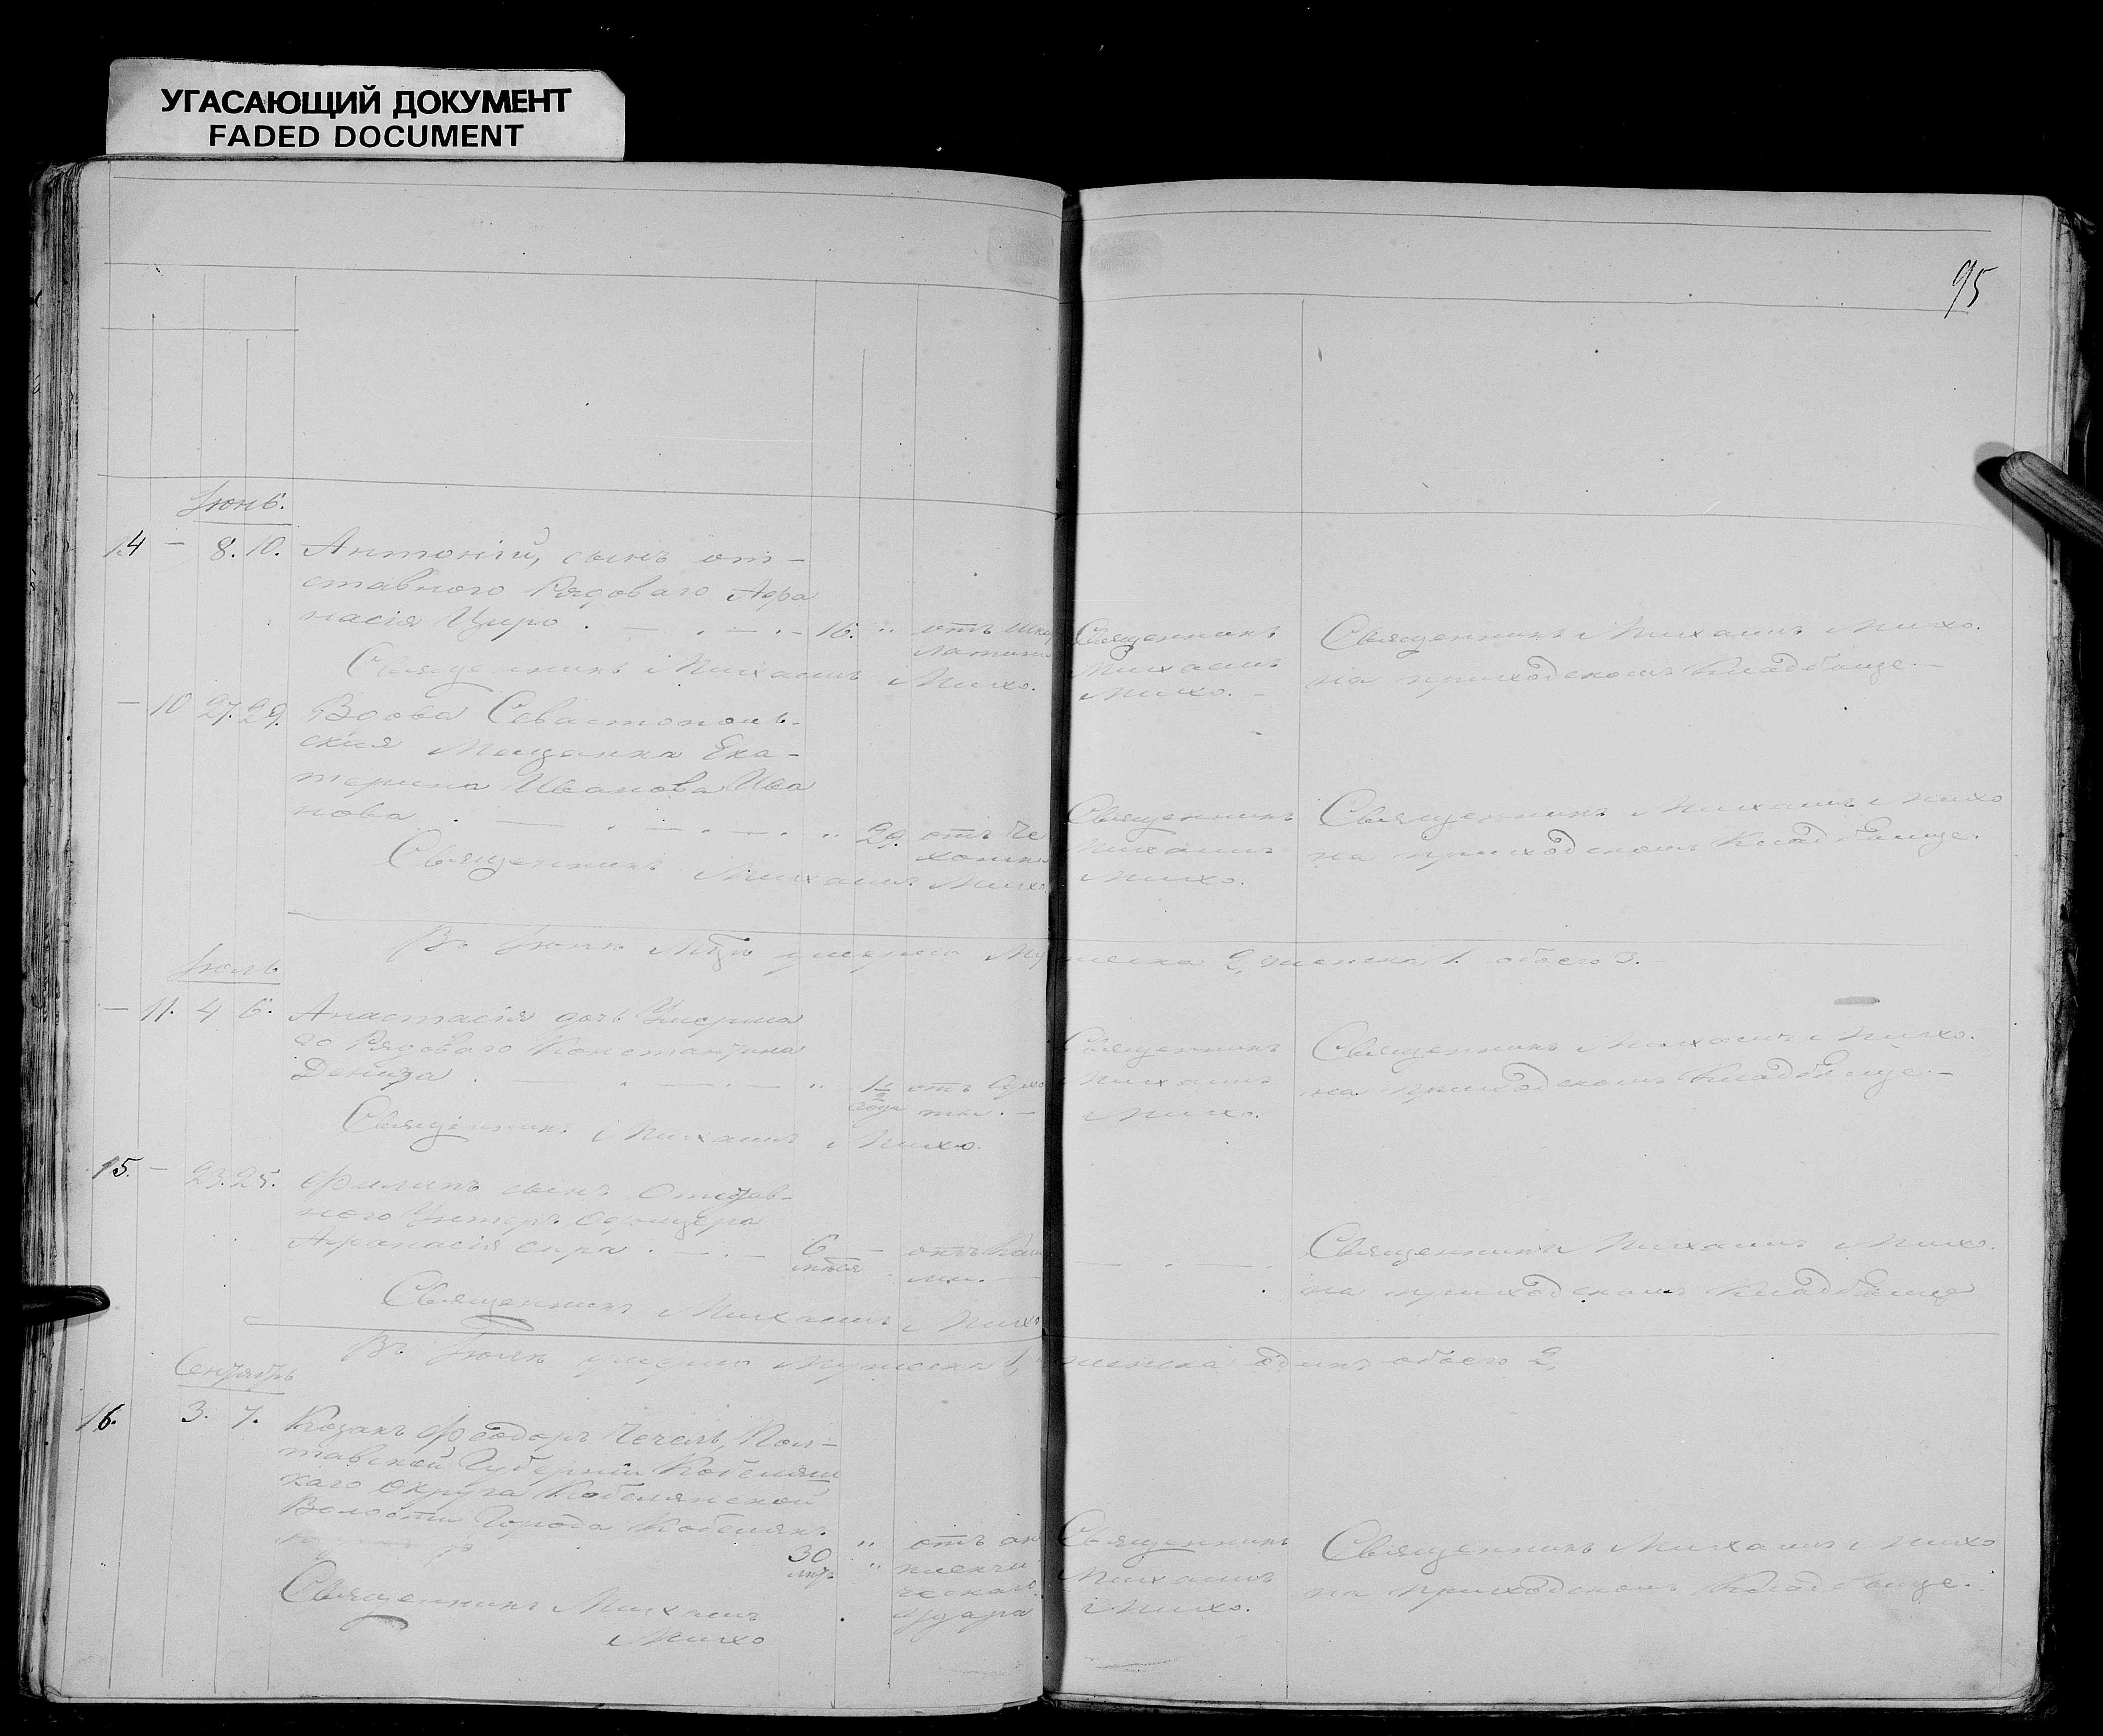 УГАСАЮЩИЙ ДОКУМЕНТ
FADED DOCUMENT
95
Іюнь.
14 — 8. 10. Антоній, сынъ от-
ставного Рядоваго Афа
насія Циро . — . — . — 16. " отъ
Священникъ Михаилъ Михо.
Священникъ
Михаилъ
Михо. —
Священникъ Михаилъ Михо.
на приходскомъ Кладбище. —
— 10 27. 29. Вдова Севастополь-
ская Мещанка Ека-
терина Иванова Ива
нова . — . — . — . " 29. отъ Че
хотки
Священникъ Михаилъ Михо.
Священникъ
Михаилъ
Михо.
Священникъ Михаилъ Михо
на приходскомъ Кладбище.
Въ Іюнѣ Мцѣ умерло Мужеска 2, женска 1. обоего 3. —
Іюль
— 11. 4 6. Анастасія дочь Умерша
го Рядоваго Константина
Дениза . — . — . — " 1½ отъ Сухо
года ты. —
Священникъ Михаилъ Михо.
Священникъ
Михаилъ
Михо.
Священникъ Михаилъ Михо.
на приходскомъ Кладбище. —
15. — 23. 25. Филипъ сынъ Отстав-
ного Унтеръ Офицера
Афанасія Сира . — . — 6 —
мѣсяц
Священникъ Михаилъ Михо
— . — .
Священникъ Михаилъ Михо.
на приходскомъ Кладбище
Въ Іюлѣ умерло Мужеска 1, женска одинъ обоего 2,
Сентябрь
16. 3. 7. Козакъ Феодоръ Чечель, Пол-
тавской Губерніи Кобеляц
каго Округа Кобелянской
Волости Города Кобелякъ.
30 " отъ ап
лѣтъ " плекси
ческаго
удара
Священникъ Михаилъ
Михо
Священникъ
Михаилъ
Михо.
Священникъ Михаилъ Михо
на приходскомъ Кладбище.